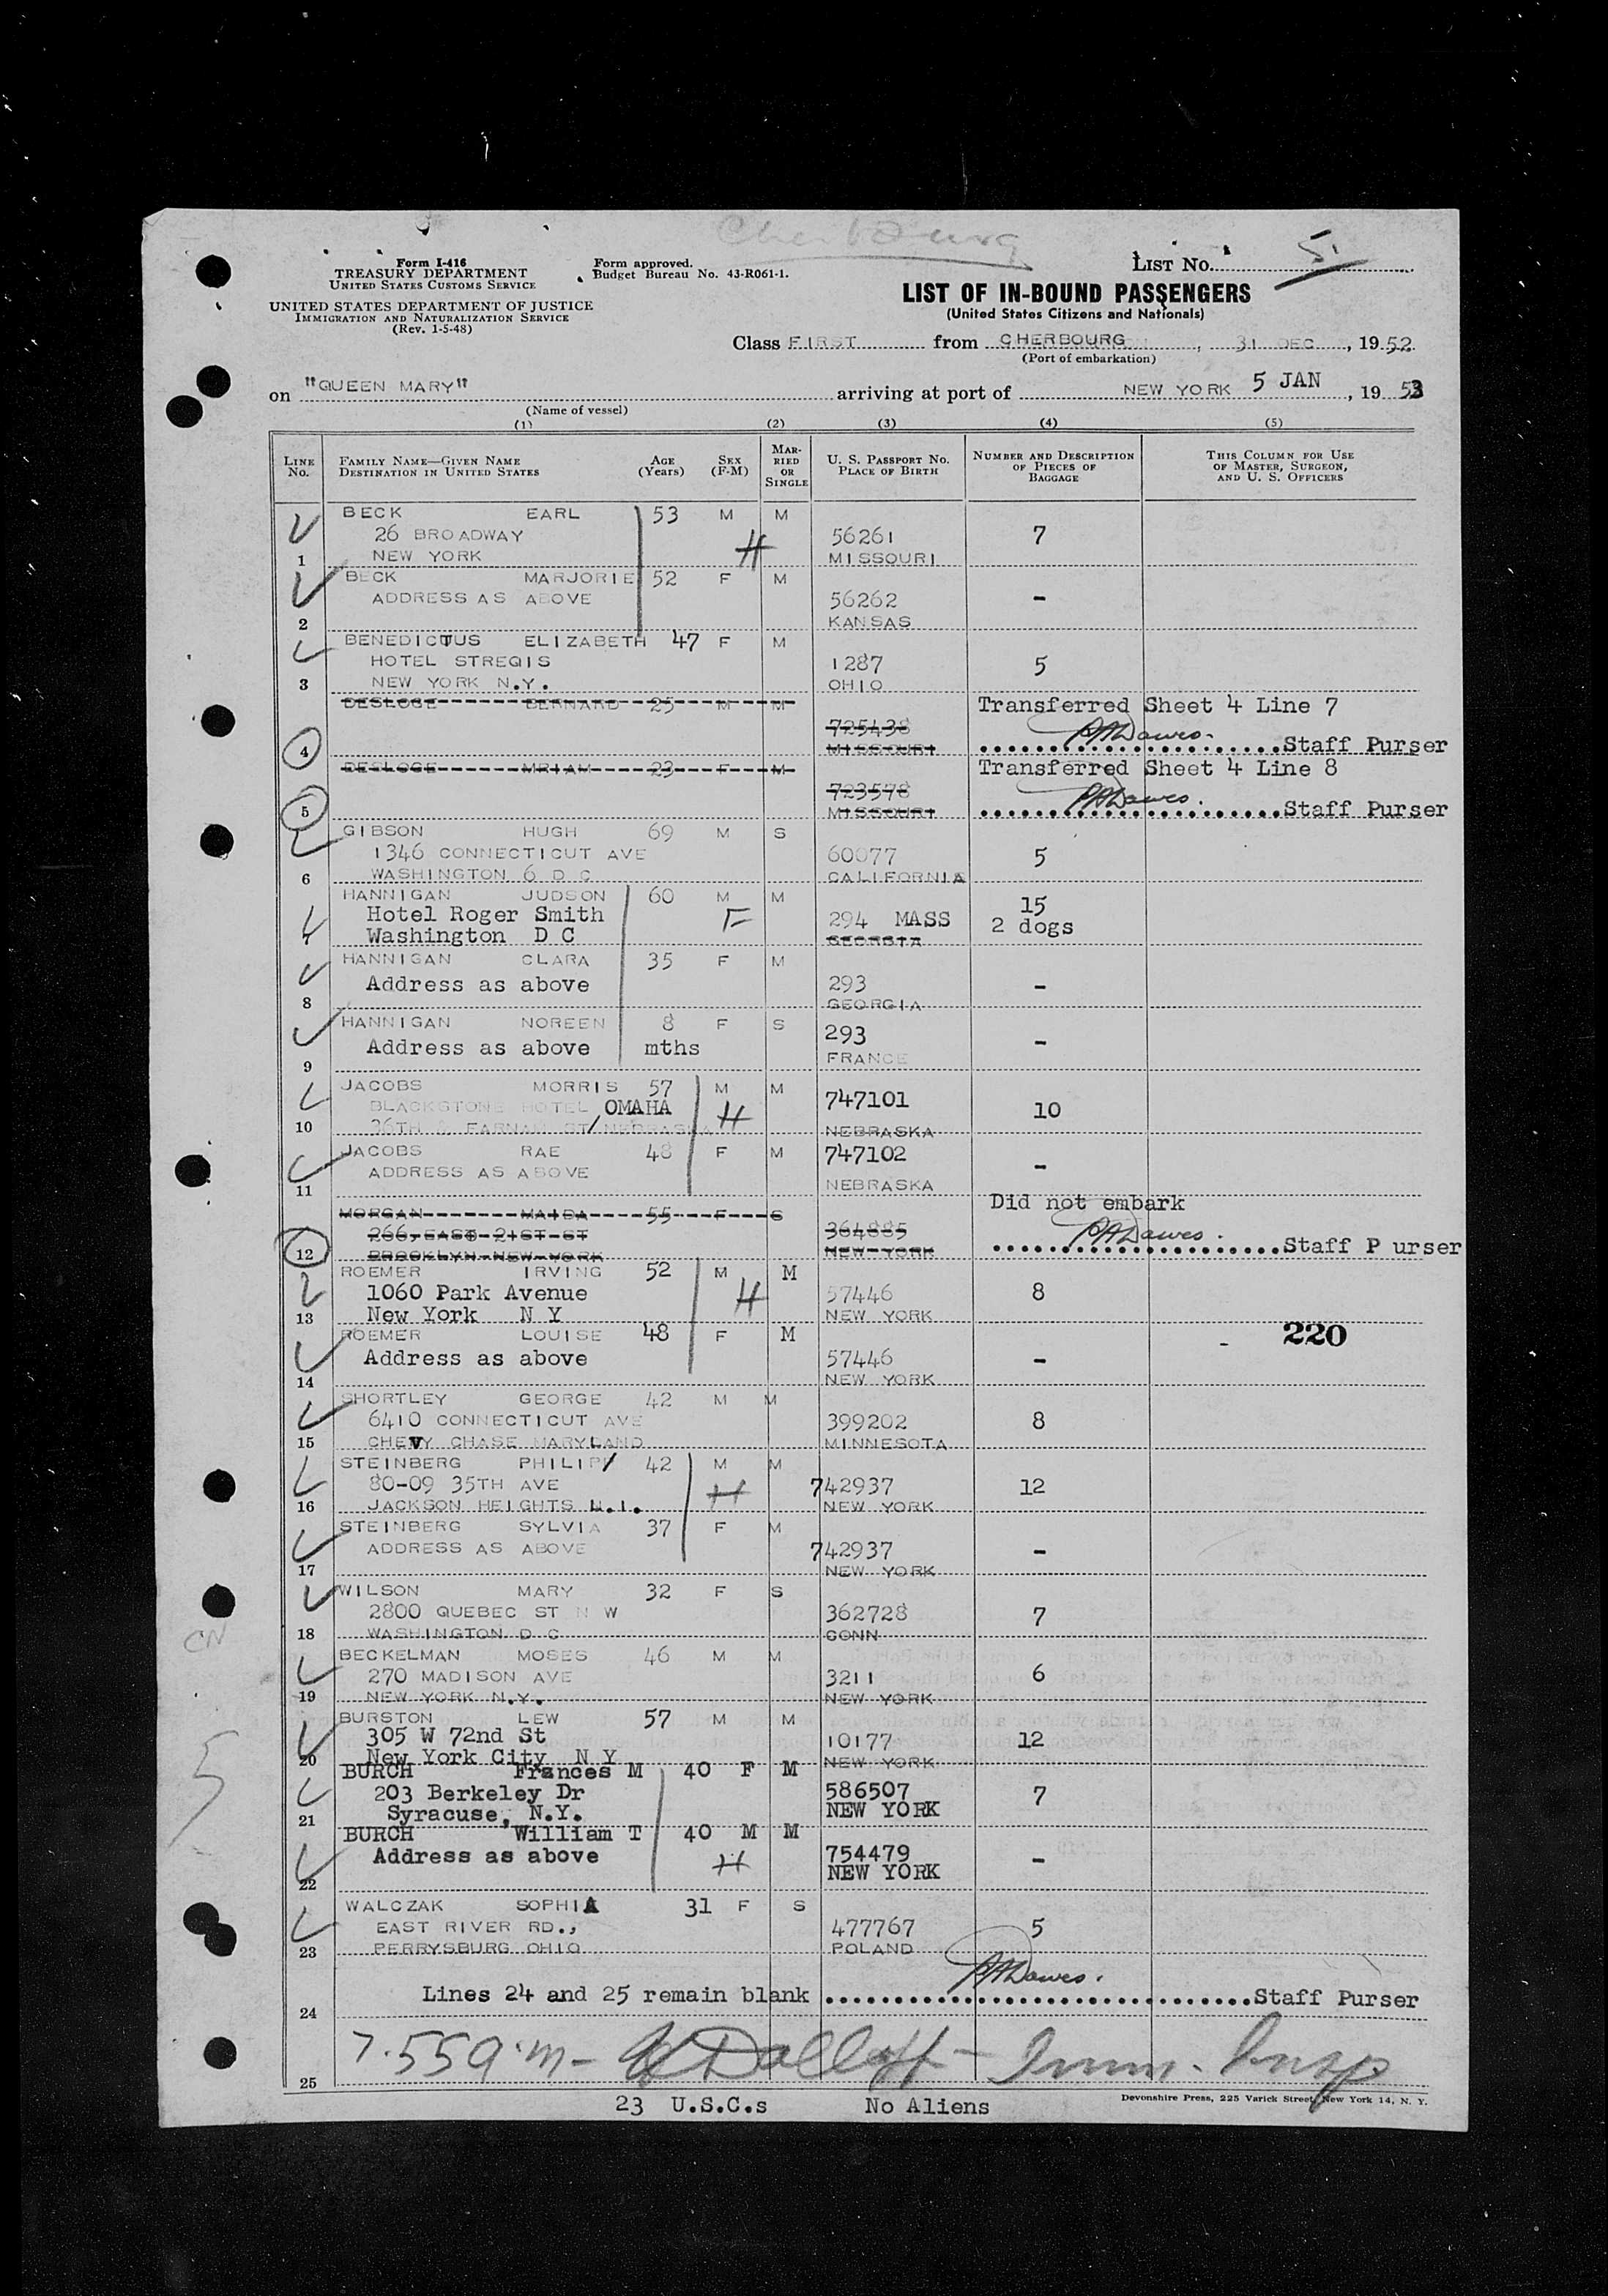 Cherbourg
Form I-416
TREASURY DEPARTMENT
UNITED STATES CUSTOMS SERVICE
Form approved.
Budget Bureau No. 43-R061-1.
LIST NO. 5
UNITED STATES DEPARTMENT OF JUSTICE
IMMIGRATION AND NATURALIZATION SERVICE
(Rev. 1-5-48)
LIST OF IN-BOUND PASSENGERS
(United States Citizens and Nationals)
Class FIRST from CHERBOURG, 31 DEC, 1952
(Port of embarkation)
on "QUEEN MARY" arriving at port of NEW YORK 5 JAN, 1953
(Name of vessel)
(1) (2) (3) (4) (5)
LINE No. FAMILY NAME—GIVEN NAME DESTINATION IN UNITED STATES AGE (Years) SEX (F-M) MARRIED OR SINGLE U. S. PASSPORT NO. PLACE OF BIRTH NUMBER AND DESCRIPTION OF PIECES OF BAGGAGE THIS COLUMN FOR USE OF MASTER, SURGEON, AND U. S. OFFICERS
BECK EARL 53 M M
26 BROADWAY 56261 7
1 NEW YORK H MISSOURI
BECK MARJORIE 52 F M
ADDRESS AS ABOVE 56262 -
2 KANSAS
BENEDICTUS ELIZABETH 47 F M
HOTEL STREGIS 1287 5
3 NEW YORK N.Y. OHIO
DESLOGE BERNARD 25 M M Transferred Sheet 4 Line 7
725438
4 MISSOURI PADawes. Staff Purser
DESLOGE MRIAM 23 F M Transferred Sheet 4 Line 8
723578
5 MISSOURI PADawes. Staff Purser
GIBSON HUGH 69 M S
1346 CONNECTICUT AVE 60077 5
6 WASHINGTON 6 D C CALIFORNIA
HANNIGAN JUDSON 60 M M 15
Hotel Roger Smith F 294 MASS 2 dogs
7 Washington D C GEORGIA
HANNIGAN CLARA 35 F M
Address as above 293 -
8 GEORGIA
HANNIGAN NOREEN 8 F S 293
Address as above mths -
9 FRANCE
JACOBS MORRIS 57 M M 747101
BLACKSTONE HOTEL OMAHA H 10
10 36TH & FARNAM ST/NEBRASKA NEBRASKA
JACOBS RAE 48 F M 747102
ADDRESS AS ABOVE -
11 NEBRASKA
MORGAN MAIDA 55 F S Did not embark
266, EAST 21ST ST 364885
12 BROOKLYN NEW YORK NEW YORK PADawes. Staff P urser
ROEMER IRVING 52 M M
1060 Park Avenue H 57446 8
13 New York N Y NEW YORK
ROEMER LOUISE 48 F M - 220
Address as above 57446 -
14 NEW YORK
SHORTLEY GEORGE 42 M M
6410 CONNECTICUT AVE 399202 8
15 CHEVY CHASE MARYLAND MINNESOTA
STEINBERG PHILIP 42 M M
80-09 35TH AVE H 742937 12
16 JACKSON HEIGHTS L.I. NEW YORK
STEINBERG SYLVIA 37 F M
ADDRESS AS ABOVE 742937 -
17 NEW YORK
WILSON MARY 32 F S
2800 QUEBEC ST N W 362728 7
18 WASHINGTON D C CONN
CN
BECKELMAN MOSES 46 M M
270 MADISON AVE 3211 6
19 NEW YORK N.Y. NEW YORK
BURSTON LEW 57 M M
305 W 72nd St 10177 12
20 New York City N Y NEW YORK
5
BURCH Frances M 40 F M
203 Berkeley Dr 586507 7
21 Syracuse, N.Y. NEW YORK
BURCH William T 40 M M
Address as above H 754479 -
22 NEW YORK
WALCZAK SOPHIA 31 F S
EAST RIVER RD., 477767 5
23 PERRYSBURG OHIO POLAND
PADawes.
24 Lines 24 and 25 remain blank Staff Purser
25 Imm. Insp
23 U.S.C.s No Aliens
Devonshire Press, 225 Varick Street, New York 14, N. Y.